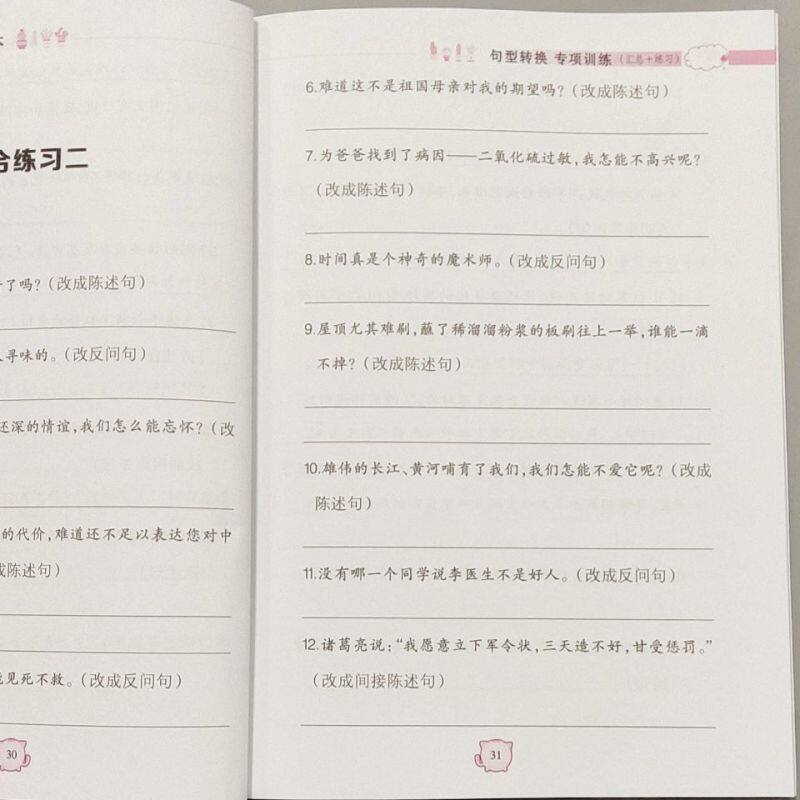 合练习二
了吗？（改成陈述句）
寻味的。（改反问句）
还深的情谊，我们怎么能忘怀？（改
的代价，难道还不足以表达您对中
成陈述句）
见死不救。（改成反问句）
30
句型转换 专项训练（汇总+练习）
6.难道这不是祖国母亲对我的期望吗？（改成陈述句）
7.为爸爸找到了病因——二氧化硫过敏，我怎能不高兴呢？
（改成陈述句）
8.时间真是个神奇的魔术师。（改成反问句）
9.屋顶尤其难刷，蘸了稀溜溜粉浆的板刷往上一举，谁能一滴
不掉？（改成陈述句）
10.雄伟的长江、黄河哺育了我们，我们怎能不爱它呢？（改成
陈述句）
11.没有哪一个同学说李医生不是好人。（改成反问句）
12.诸葛亮说：“我愿意立下军令状，三天造不好，甘受惩罚。”
（改成间接陈述句）
31